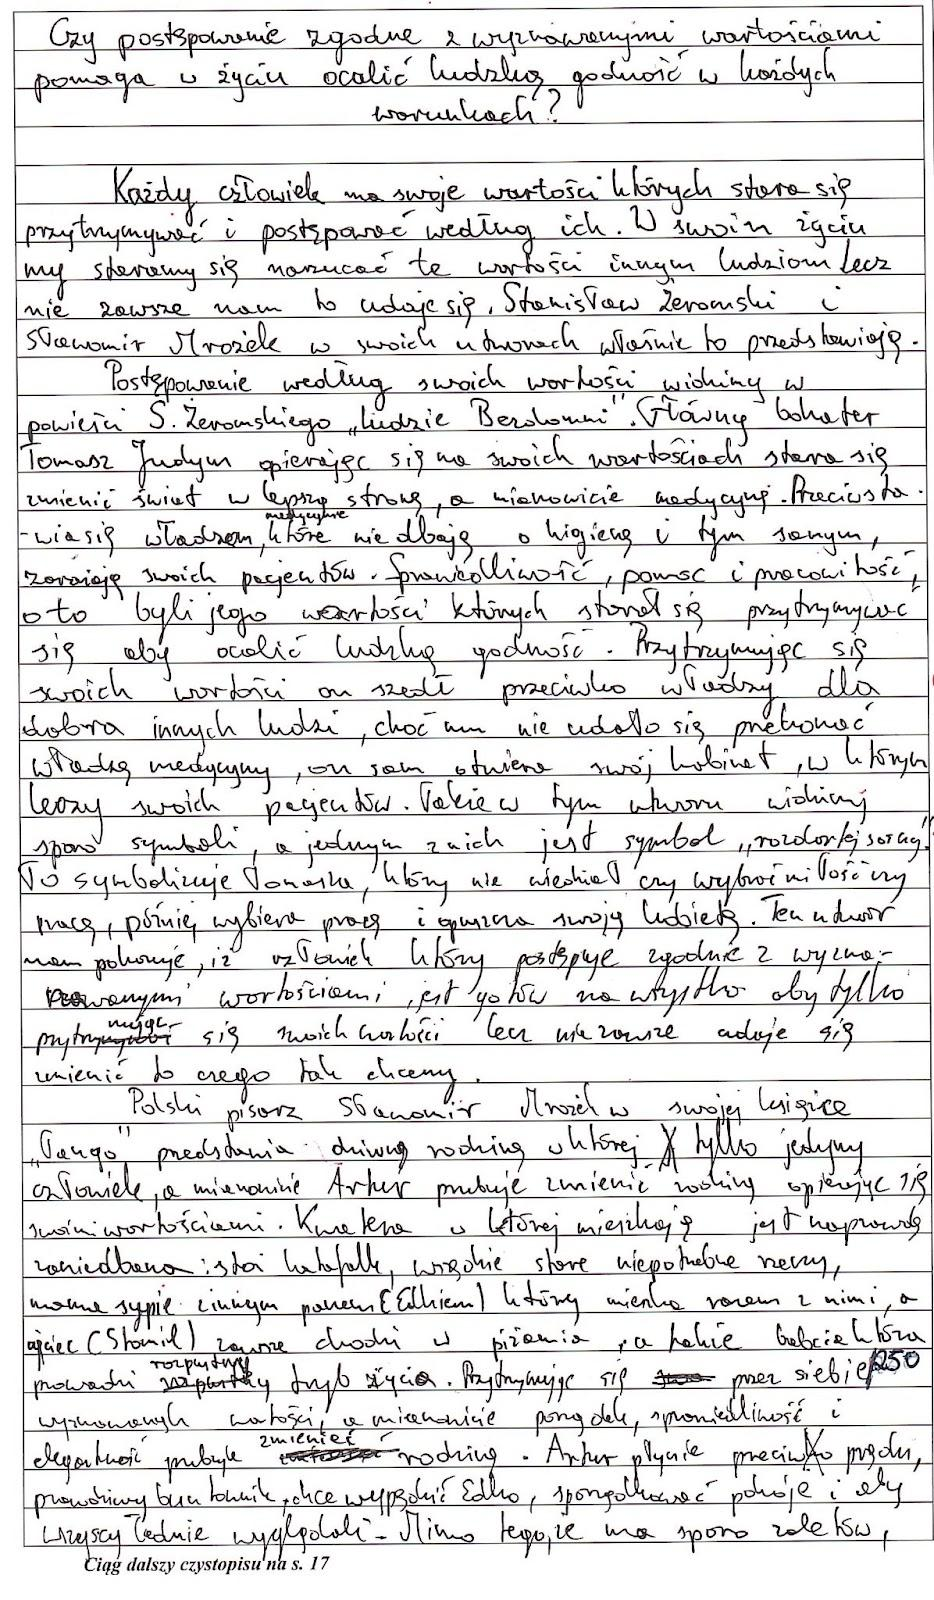 Czy postępowanie zgodne z wyznawanymi wartościami
pomaga w życiu ocalić ludzką godność w każdych
warunkach?
Każdy człowiek ma swoje wartości których stara się
przytrzymywać i postępować według ich. W swoim życiu
my staramy się narzucać te wartości innym ludziom lecz
nie zawsze nam to udaje się. Stanisław Żeromski i
Sławomir Mrożek w swoich utworach właśnie to przedstawiają.
Postępowanie według swoich wartości widzimy w
powieści S. Żeromskiego „Ludzie Bezdomni". Główny bohater
Tomasz Judym opierając się na swoich wartościach stara się
zmienić świat w lepszą stronę, a mianowicie medycynę. Przeciwsta-
-wia się władzom medycynie, które nie dbają o higienę i tym samym,
zarażają swoich pacjentów. Sprawiedliwość, pomoc i pracowitość,
oto byli jego wartości których starał się przytrzymywać
się aby ocalić ludzką godność. Przytrzymując się
swoich wartości on szedł przeciwko władzy dla
dobra innych ludzi, choć mu nie udało się przekonać
władzę medycyny, on sam otwiera swój kabinet, w którym
leczy swoich pacjentów. Także w tym utworu widzimy
sporo symboli, a jednym z nich jest symbol „rozdartej sosny".
To symbolizuje Tomasza, który nie wiedział czy wybrać miłość czy
pracę, później wybiera pracę i opuszcza swoją kobietę. Ten utwór
nam pokazuje, iż człowiek który postępuje zgodnie z wyzna-
wanymi wartościami, jest gotów na wszystko aby tylko
przytrzymując się swoich wartości lecz nie zawsze udaje się
zmienić to czego tak chcemy.
Polski pisarz Sławomir Mrożek w swojej książce
„Tango" przedstawia dziwną rodzinę u której tylko jedyny
człowiek, a mianowicie Artur prubuje zmienić rodzinę opierając się
swoimi wartościami. Kwatera w której mieszkają jest naprawdę
zaniedbana: stoi katafalk, wszędzie stare niepotrzebne rzeczy,
mama sypie z innym panem (Edkiem) który mieszka razem z nimi, a
ojciec (Stomil) zawsze chodzi w piżamie, a także babcia która
prowadzi rozpustny tryb życia. Przytrzymując się przez siebie
250
wyznawanych wartości, a mianowicie porządek, sprawiedliwość i
elegantność prubuje zmienić rodzinę. Artur płynie przeciwko prądu,
prawdziwy buntownik, chce wypędzić Edka, sporządkować pokoje i aby
wszyscy ładnie wyglądali. Mimo tego, że ma sporo zaletów,
Ciąg dalszy czystopisu na s. 17